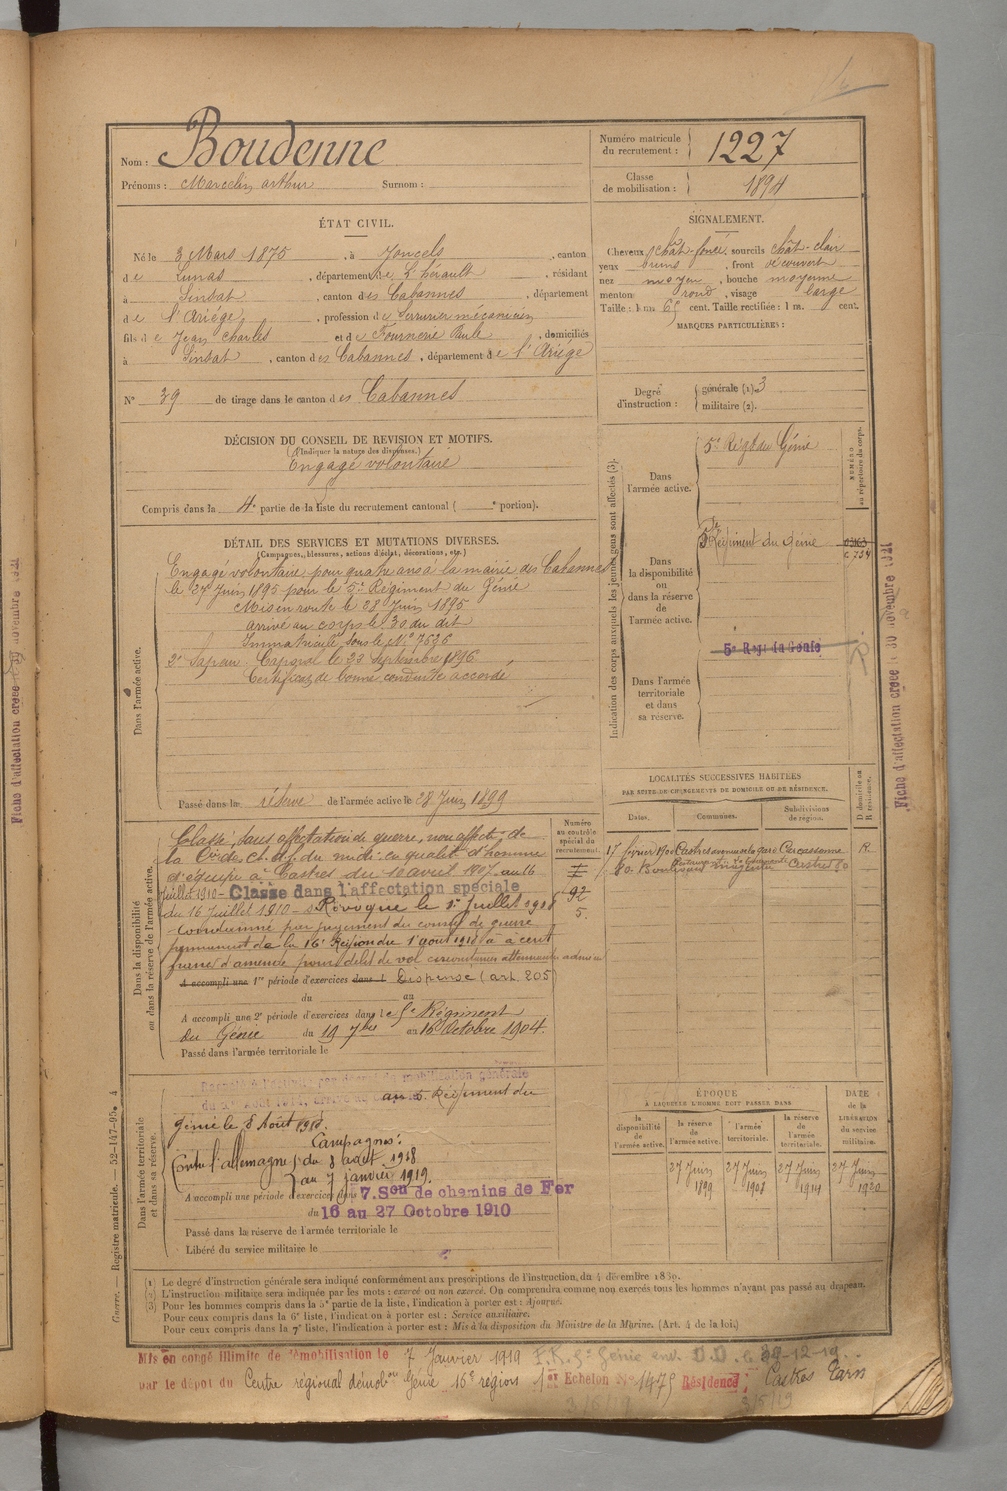 Nom : Boudenne
Prénoms : Marcelin arthur Surnom :
Numéro matricule du recrutement : 1227
Classe de mobilisation : 1894
ÉTAT CIVIL.
Né le 3 Mars 1875, à Joncels, canton
de Lunas, département de L'hérault, résidant
à Sinsat, canton des Cabannes, département
de l'Ariége, profession de Serrurier mécanicien
fils de Jean Charles et de Fournerie Paule, domiciliés
à Sinsat, canton des Cabannes, département de l'Ariége
N° 39 de tirage dans le canton des Cabannes
SIGNALEMENT.
Cheveux chât-foncé, sourcils chât-clair
yeux bruns, front découvert
nez moyen, bouche moyenne
menton rond, visage large
Taille : 1 m. 65 cent. Taille rectifiée : 1 m. cent.
MARQUES PARTICULIÈRES :
Degré d'instruction :
générale (1). 3
militaire (2).
DÉCISION DU CONSEIL DE REVISION ET MOTIFS.
(Indiquer la nature des dispenses.)
Engagé volontaire
Compris dans la 4e partie de la liste du recrutement cantonal ( e portion).
Indication des corps auxquels les jeunes gens sont affectés (3).
NUMÉRO au répertoire du corps.
Dans l'armée active.
5e Régt du Génie
Dans la disponibilité ou dans la réserve de l'armée active.
5e Régiment du Génie
Dans l'armée territoriale et dans sa réserve.
5e Régt du Génie
DÉTAIL DES SERVICES ET MUTATIONS DIVERSES.
(Campagnes, blessures, actions d'éclat, décorations, etc.)
Dans l'armée active.
Engagé volontaire pour quatre ans à la mairie des Cabannes
le 27 Juin 1895 pour le 5e Régiment du Génie
Mis en route le 28 Juin 1895
arrivé au corps le 30 du dit
Immatriculé sous le N° 7636
2e Sapeur. Caporal le 22 Septembre 1896
Certificat de bonne conduite accordé
Passé dans la réserve de l'armée active le 28 Juin 1899
Dans la disponibilité ou dans la réserve de l'armée active.
Numéro au contrôle spécial du recrutement.
Classé, sans affectation de guerre, non affecté de
la Cie des ch. d. f. du midi en qualité d'homme
d'équipe à Castres du 10 avril 1907 au 16
Juillet 1910 - Classé dans l'affectation spéciale
du 16 Juillet 1910 - Révoqué le 1er Juillet 1918
Condamné par jugement du conseil de guerre
permanent de la 16e Région du 1er août 1918 à cent
francs d'amende pour délit de vol circonstances atténuantes admises
92
5.
A accompli une 1re période d'exercices dans l Dispensé (art. 205)
du au
A accompli une 2e période d'exercices dans le 5e Régiment
du Génie du 19 7bre au 16 Octobre 1904.
Passé dans l'armée territoriale le
Dans l'armée territoriale et dans sa réserve.
Rappelé à l'activité par décret de mobilisation générale
au 5. Régiment du
génie le 8 Août 1918.
Campagnes :
Contre l'allemagne du 8 août 1918
au 7 janvier 1919.
A accompli une période d'exercices dans 7. Son de chemins de Fer
du 16 au 27 Octobre 1910
Passé dans la réserve de l'armée territoriale le
Libéré du service militaire le
LOCALITÉS SUCCESSIVES HABITÉES
PAR SUITE DE CHANGEMENTS DE DOMICILE OU DE RÉSIDENCE.
Dates. Communes. Subdivisions de région. D domicile ou R résidence.
17 février 1900 Castres avenue de la gare Carcassonne R.
80. Boulevard Magenta Castres
ÉPOQUE
À LAQUELLE L'HOMME DOIT PASSER DANS
la disponibilité de l'armée active.
la réserve de l'armée active.
l'armée territoriale.
la réserve de l'armée territoriale.
DATE de la LIBÉRATION du service militaire.
27 Juin 1899
27 Juin 1908
27 Juin 1914
27 Juin 1920
(1) Le degré d'instruction générale sera indiqué conformément aux prescriptions de l'instruction du 4 décembre 1889.
(2) L'instruction militaire sera indiquée par les mots : exercé ou non exercé. On comprendra comme non exercés tous les hommes n'ayant pas passé au drapeau.
(3) Pour les hommes compris dans la 5e partie de la liste, l'indication à porter est : Ajourné.
Pour ceux compris dans la 6e liste, l'indication à porter est : Service auxiliaire.
Pour ceux compris dans la 7e liste, l'indication à porter est : Mis à la disposition du Ministre de la Marine. (Art. 4 de la loi.)
Guerre. — Registre matricule. — 52-147-95. 4
Mis en congé illimité de démobilisation le 7 Janvier 1919
par le dépôt du Centre régional démobon Génie 16e région 1er Echelon No 1475 Résidence : Castres Tarn
Fiche d'affectation créée le 30 novembre 1921